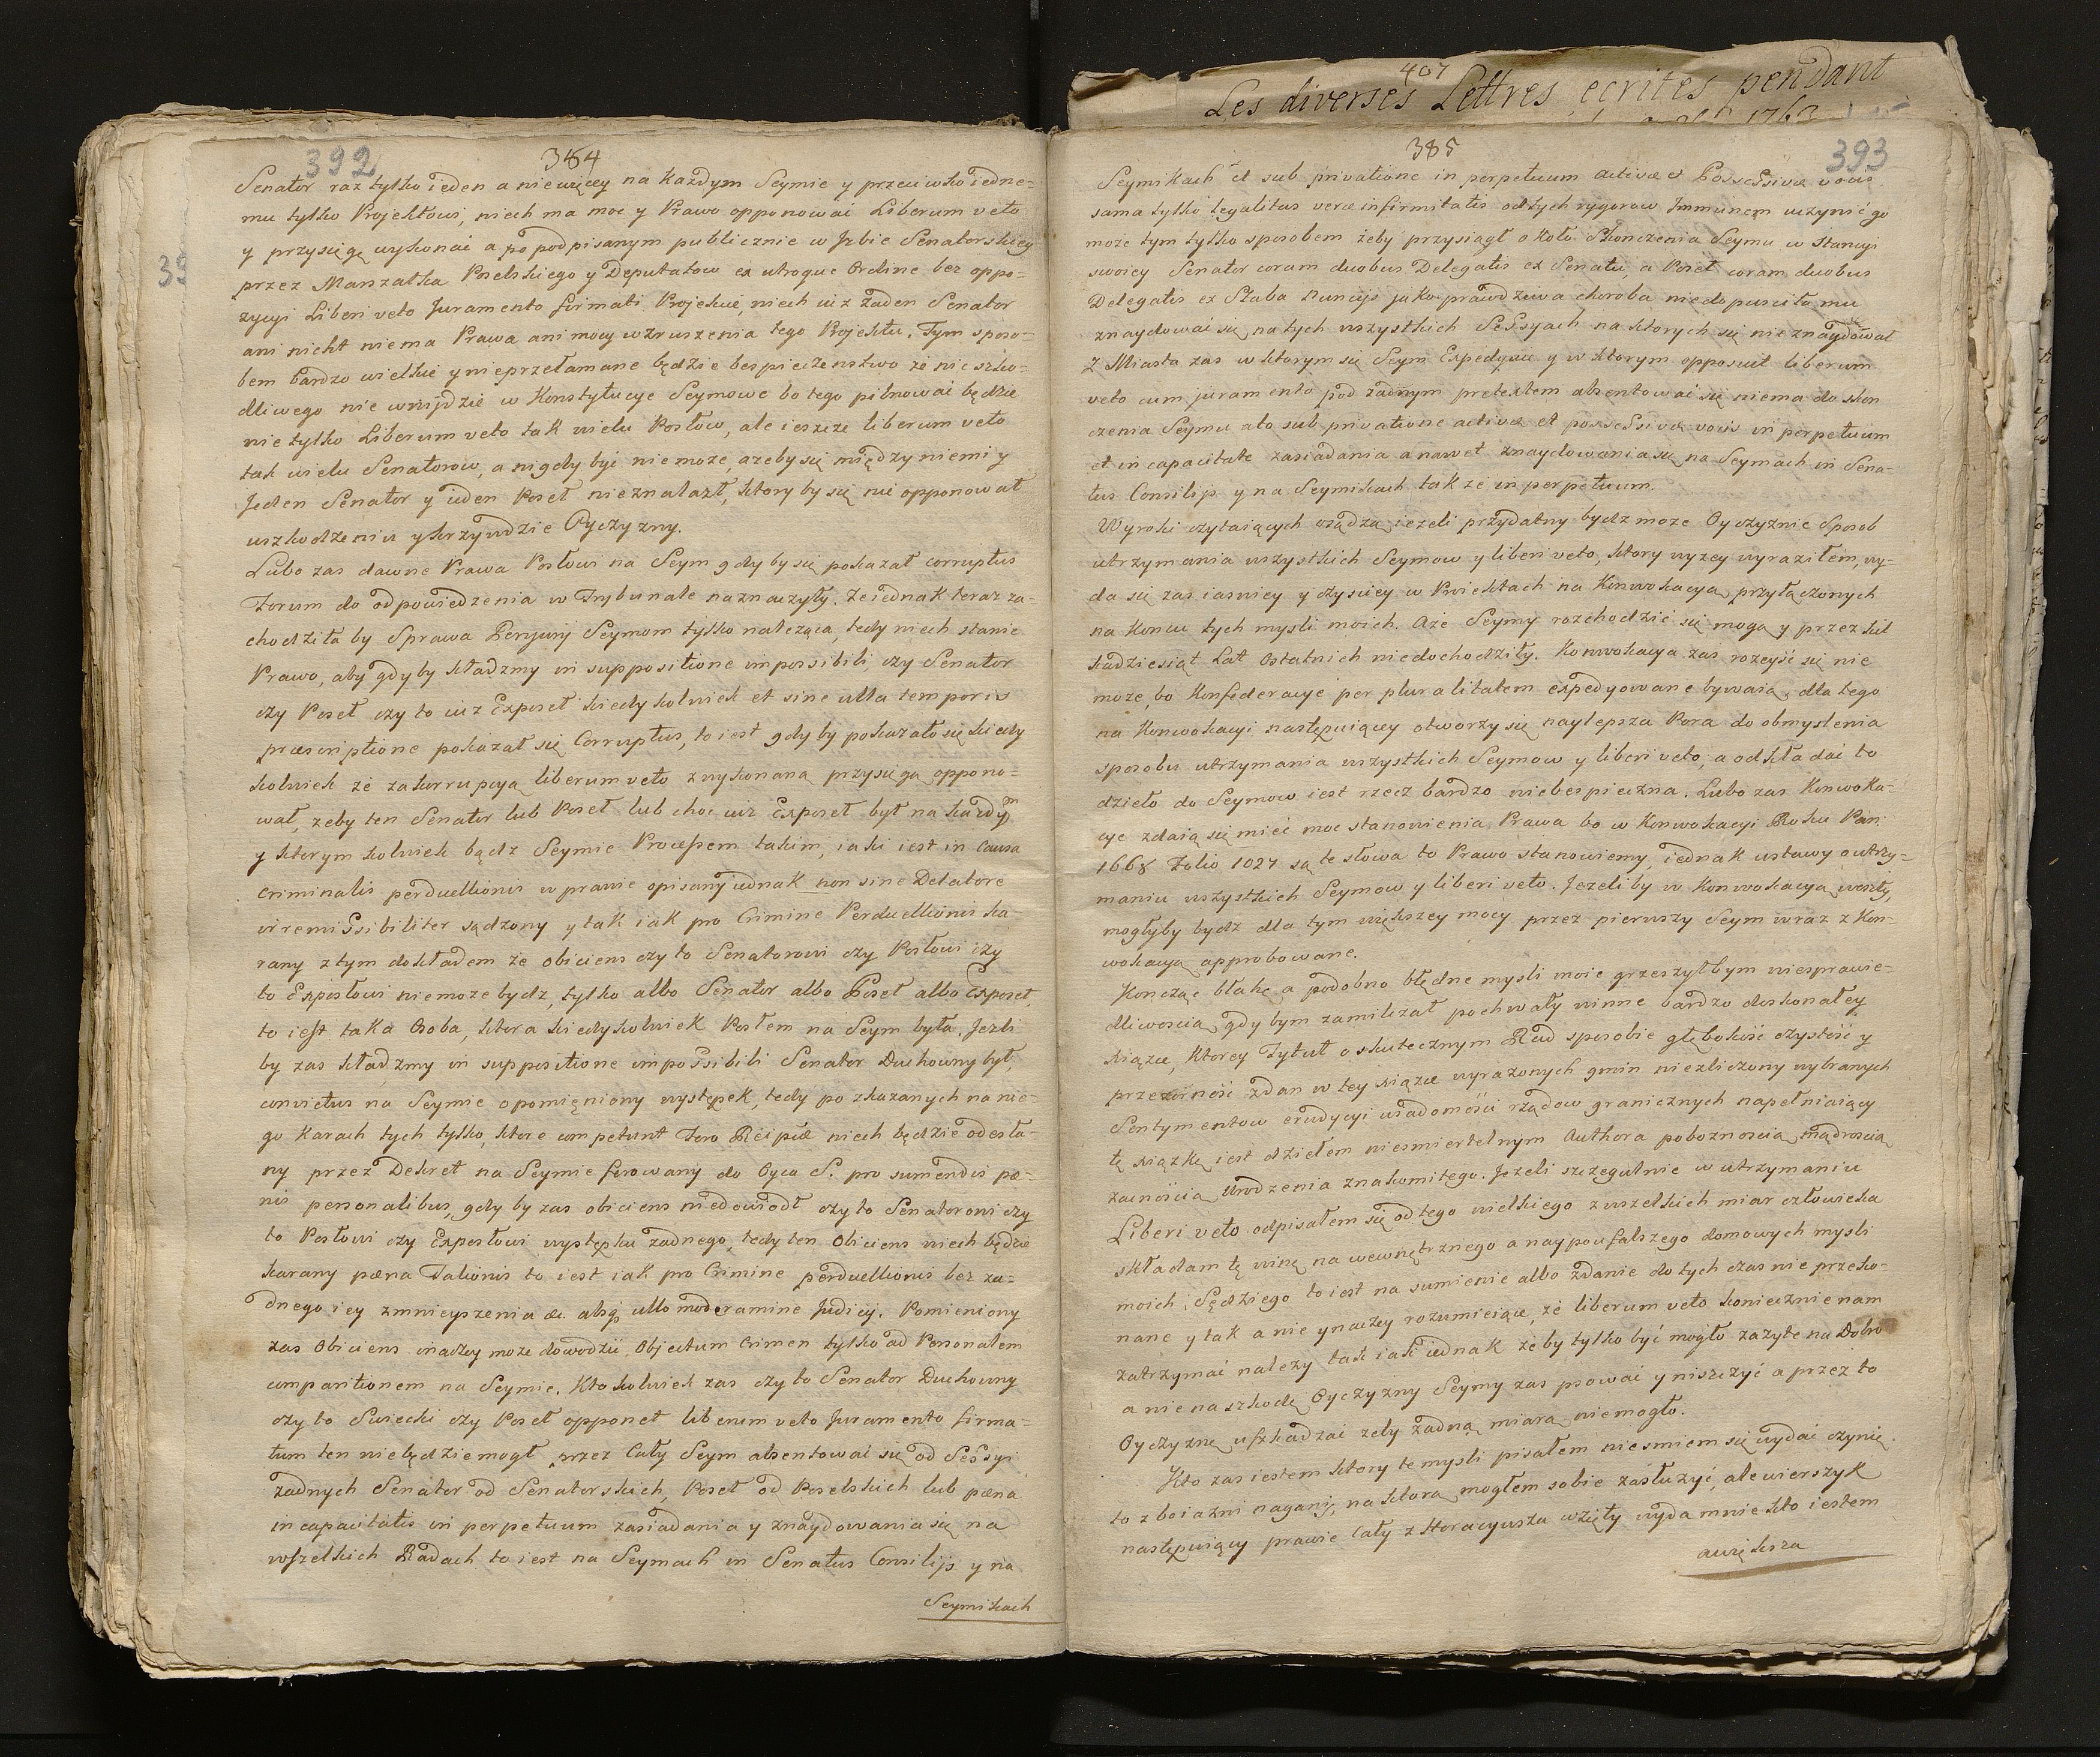 392
384
Senator raz tylko ieden a niewięcey na każdym Seymie y przeciwko iedne-
mu tylko Projektowi, niech ma moc y Prawo opponować Liberum veto
y przysięgę wykonać a po podpisanym publicznie w Jzbie Senatorskiey
przez Marszałka Poselskiego y Deputatow ex utroque Ordine bez oppo-
zycyi Liberi veto Juramento firmati Projekcie, niech iuż żaden Senator
ani nicht niema Prawa ani mocy wzruszenia tego Projektu. Tym sposo-
bem bardzo wielkie y nieprzełamane będzie bespieczenstwo że nic szko-
dliwego nie wnijdzie w Konstytucye Seymowe bo tego pilnować będzie
nie tylko Liberum veto tak wielu Posłow, ale ieszcze liberum veto
tak wielu Senatorow, a nigdy być niemoże, ażeby się między niemi y
Jeden Senator y ieden Poseł nieznalazł, ktory by się nie opponował
uszkodzeniu y krzywdzie Oyczyzny.
Lubo zas dawne Prawa Posłowi na Seym gdyby się pokazał corruptus
Forum do odpowiedzenia w Trybunale naznaczyły. Że iednak teraz za-
chodziła by Sprawa Perjurij Seymom tylko należąca, tedy niech stanie
Prawo, aby gdyby kładzmy in suppositione impossibili czy Senator
czy Poseł czy to iuż Exposeł kiedykolwiek et sine ulla temporis
præscriptione pokazał się Corruptus, to iest gdyby pokazało się kiedy
kolwiek że za korrupcyą liberum veto z wykonaną przysięgą oppono-
wał, żeby ten Senator lub Poseł lub choc iuż Exposeł był na każdym
y ktorym kolwiek bądz Seymie Processem takim, iaki iest in causa
criminalis perduellionis w prawie opisany iednak non sine Delatore
irremissibiliter sądzony y tak iak pro Crimine Perduellionis ka-
rany z tym dokładem że obiciens czy to Senatorowi czy Posłowi czy
to Exposłowi niemoże bydz, tylko albo Senator albo Poseł albo Exposeł,
to iest taka Osoba, ktora kiedykolwiek Posłem na Seym była. Jezli
by zas kładzmy in suppositione impossibili Senator Duchowny był,
convictus na Seymie o pomięniony występek, tedy po zkazanych na nie-
go Karach tych tylko, ktore competunt Foro Reipcæ niech będzie odesła-
ny przez Dekret na Seymie ferowany do Oyca S. pro sumendis pæ-
nis personalibus, gdyby zas obiciens niedowiodł czy to Senatorowi czy
to Posłowi czy Exposłowi występku żadnego, tedy ten Obiciens niech będzie
karany pæna Talionis to iest iak pro Crimine perduellionis bez ża-
dnego iey zmnieyszenia &c. absq ullo moderamine Judicij. Pomieniony
zas Obiciens inaczey może dowodzic Objectum Crimen tylko ad Personalem
comparitionem na Seymie. Ktokolwiek zas czy to Senator Duchowny
czy to Swiecki czy Poseł opponet liberum veto Juramento firma-
tum ten niebędzie mogł przez Cały Seym absentować się od Sessyi
żadnych Senator od Senatorskich, Poseł od Poselskich lub pæna
incapacitatis in perpetuum zasiadania y znaydowania się na
wszelkich Radach to iest na Seymach in Senatus Consilijs y na
Seymikach
407
Les diverses Lettres ecrites pendant
1763
385
393
Seymikach et sub privatione in perpetuum activæ et Possessivæ vocis
sama tylko legalitas veræ infirmitatis od tych rygorow Jmmunem uczynić go
może tym tylko sposobem żeby przysiągł około skonczenia Seymu w stancyi
swoiey Senator coram duobus Delegatis ex Senatu, a Poseł coram duobus
Delegatis ex Staba Nuncijs jako prawdziwa choroba niedopuściła mu
znaydować się na tych wszystkich Sessyach na ktorych się nie znaydował
z Miasta zas w ktorym się Seym Expedyuie y w ktorym opposuit liberum
veto cum juramento pod żadnym pretextem absentować się niema do skon
czenia Seymu ato sub privatione activæ et possessivæ vocis in perpetuum
et incapacitate zasiadania a nawet znaydowania się na Seymach in Sena-
tus Consilijs y na Seymikach także in perpetuum.
Wyroki czytaiących osądzą ieżeli przydatny bydz może Oyczyznie Sposob
utrzymania wszystkich Seymow y liberi veto, ktory wyżey wyraziłem, wy-
da się zas iasniey y czysciey w Proiektach na Konwokacyą przyłączonych
na Koncu tych mysli moich. Aże Seymy rozchodzić się mogą y przez kil
kadziesiąt Lat Ostatnich niedochodziły. Konwokacya zas rozeyść się nie
może, bo Konfederacye per pluralitatem expedyowane bywaią, dla tego
na Konwokacyi następuiącey otworzy się naylepsza Pora do obmyslenia
sposobu utrzymania wszystkich Seymow y liberi veto, a odkładać to
dzieło do Seymow iest rzecz bardzo niebespieczna. Lubo zas Konwoka-
cye zdaią się mieć moc stanowienia Prawa bo w Konwokacyi Roku Pań:
1668 Folio 1027 są te słowa to Prawo stanowiemy iednak ustawy o utrzy-
maniu wszystkich Seymow y liberi veto. Jeżeliby w Konwokacyą weszły,
mogłyby bydz dla tym większey mocy przez pierwszy Seym wraz z Kon-
wokacyą approbowane.
Koncząc błahe a podobno błędne mysli moie grzeszyłbym niesprawie-
dliwoscią, gdybym zamilczał pochwały winne bardzo doskonałey
xiązce, Ktorey Tytuł o skutecznym Rad sposobie głębokość czystość y
przezorność zdan w tey xiązce wyrażonych gmin niezliczony wybranych
Sentymentow erudycyi wiadomości rządow granicznych napełniaiący
tę xiązkę iest dziełem niesmiertelnym Authora poboznoscią mądroscią
zacnością Urodzenia znakomitego. Jeżeli szczegulnie w utrzymaniu
Liberi veto odpisałem się od tego wielkiego z wszelkich miar człowieka
składam tę winę na wewnętrznego a naypoufalszego domowych mysli
moich Sędziego to iest na sumienie albo zdanie do tych czas nie przeko-
nane y tak a nie ynaczey rozumieiące, że liberum veto koniecznie nam
zatrzymać nalezy tak iak iednak żeby tylko być mogło zażyte na Dobro
a nie na szkodę Oyczyzny Seymy zas psować y niszczyć a przez to
Oyczyznę uszkadzać żeby żadną miarą niemogło.
Kto zas iestem ktory te mysli pisałem niesmiem się wydać czynię
to z boiazni nagany, na ktorą mogłem sobie zasłużyć, ale wierszyk
następuiący prawie Cały z Horacyusza wzięty wyda mnie kto iestem
a większa